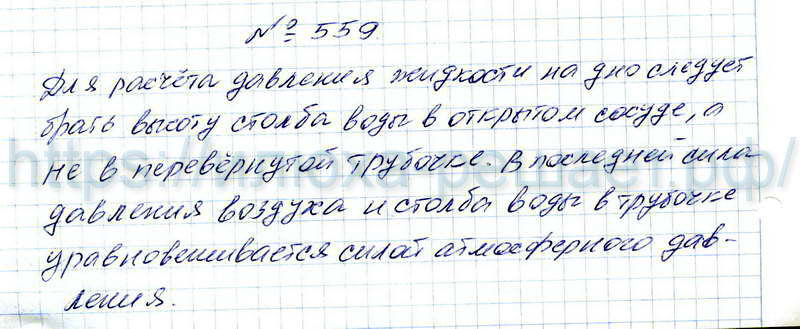 № 559
Для расчёта давления жидкости на дно следует
брать высоту столба воды в открытом сосуде, а
не в перевёрнутой трубочке. В последней сила
давления воздуха и столба воды в трубочке
уравновешивается силой атмосферного дав-
ления.